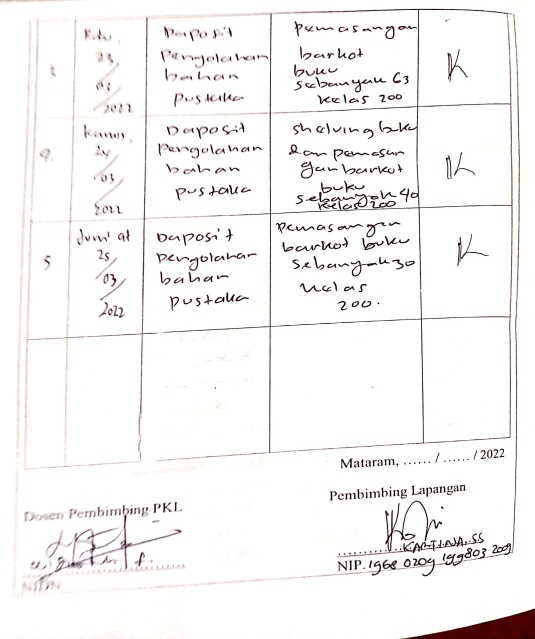 3
Rabu,
23/
03/
2022
Daposit
Pengolahan
bahan
pustaka
pemasangan
barkot
buku
sebanyak 63
kelas 200
K
4
Kamis,
24/
03/
2022
Daposit
Pengolahan
bahan
pustaka
shelving buku
dan pemasan
gan barkot
buku
sebanyak 40
kelas 200
K
5
Jum'at
25/
03/
2022
Daposit
pengolahan
bahan
pustaka
pemasangan
barkot buku
sebanyak 30
kelas
200.
K
Mataram, ...... / ...... / 2022
Dosen Pembimbing PKL
Pembimbing Lapangan
KARTINA, SS
NIP. 1968 0209 199803 2009
NIDN